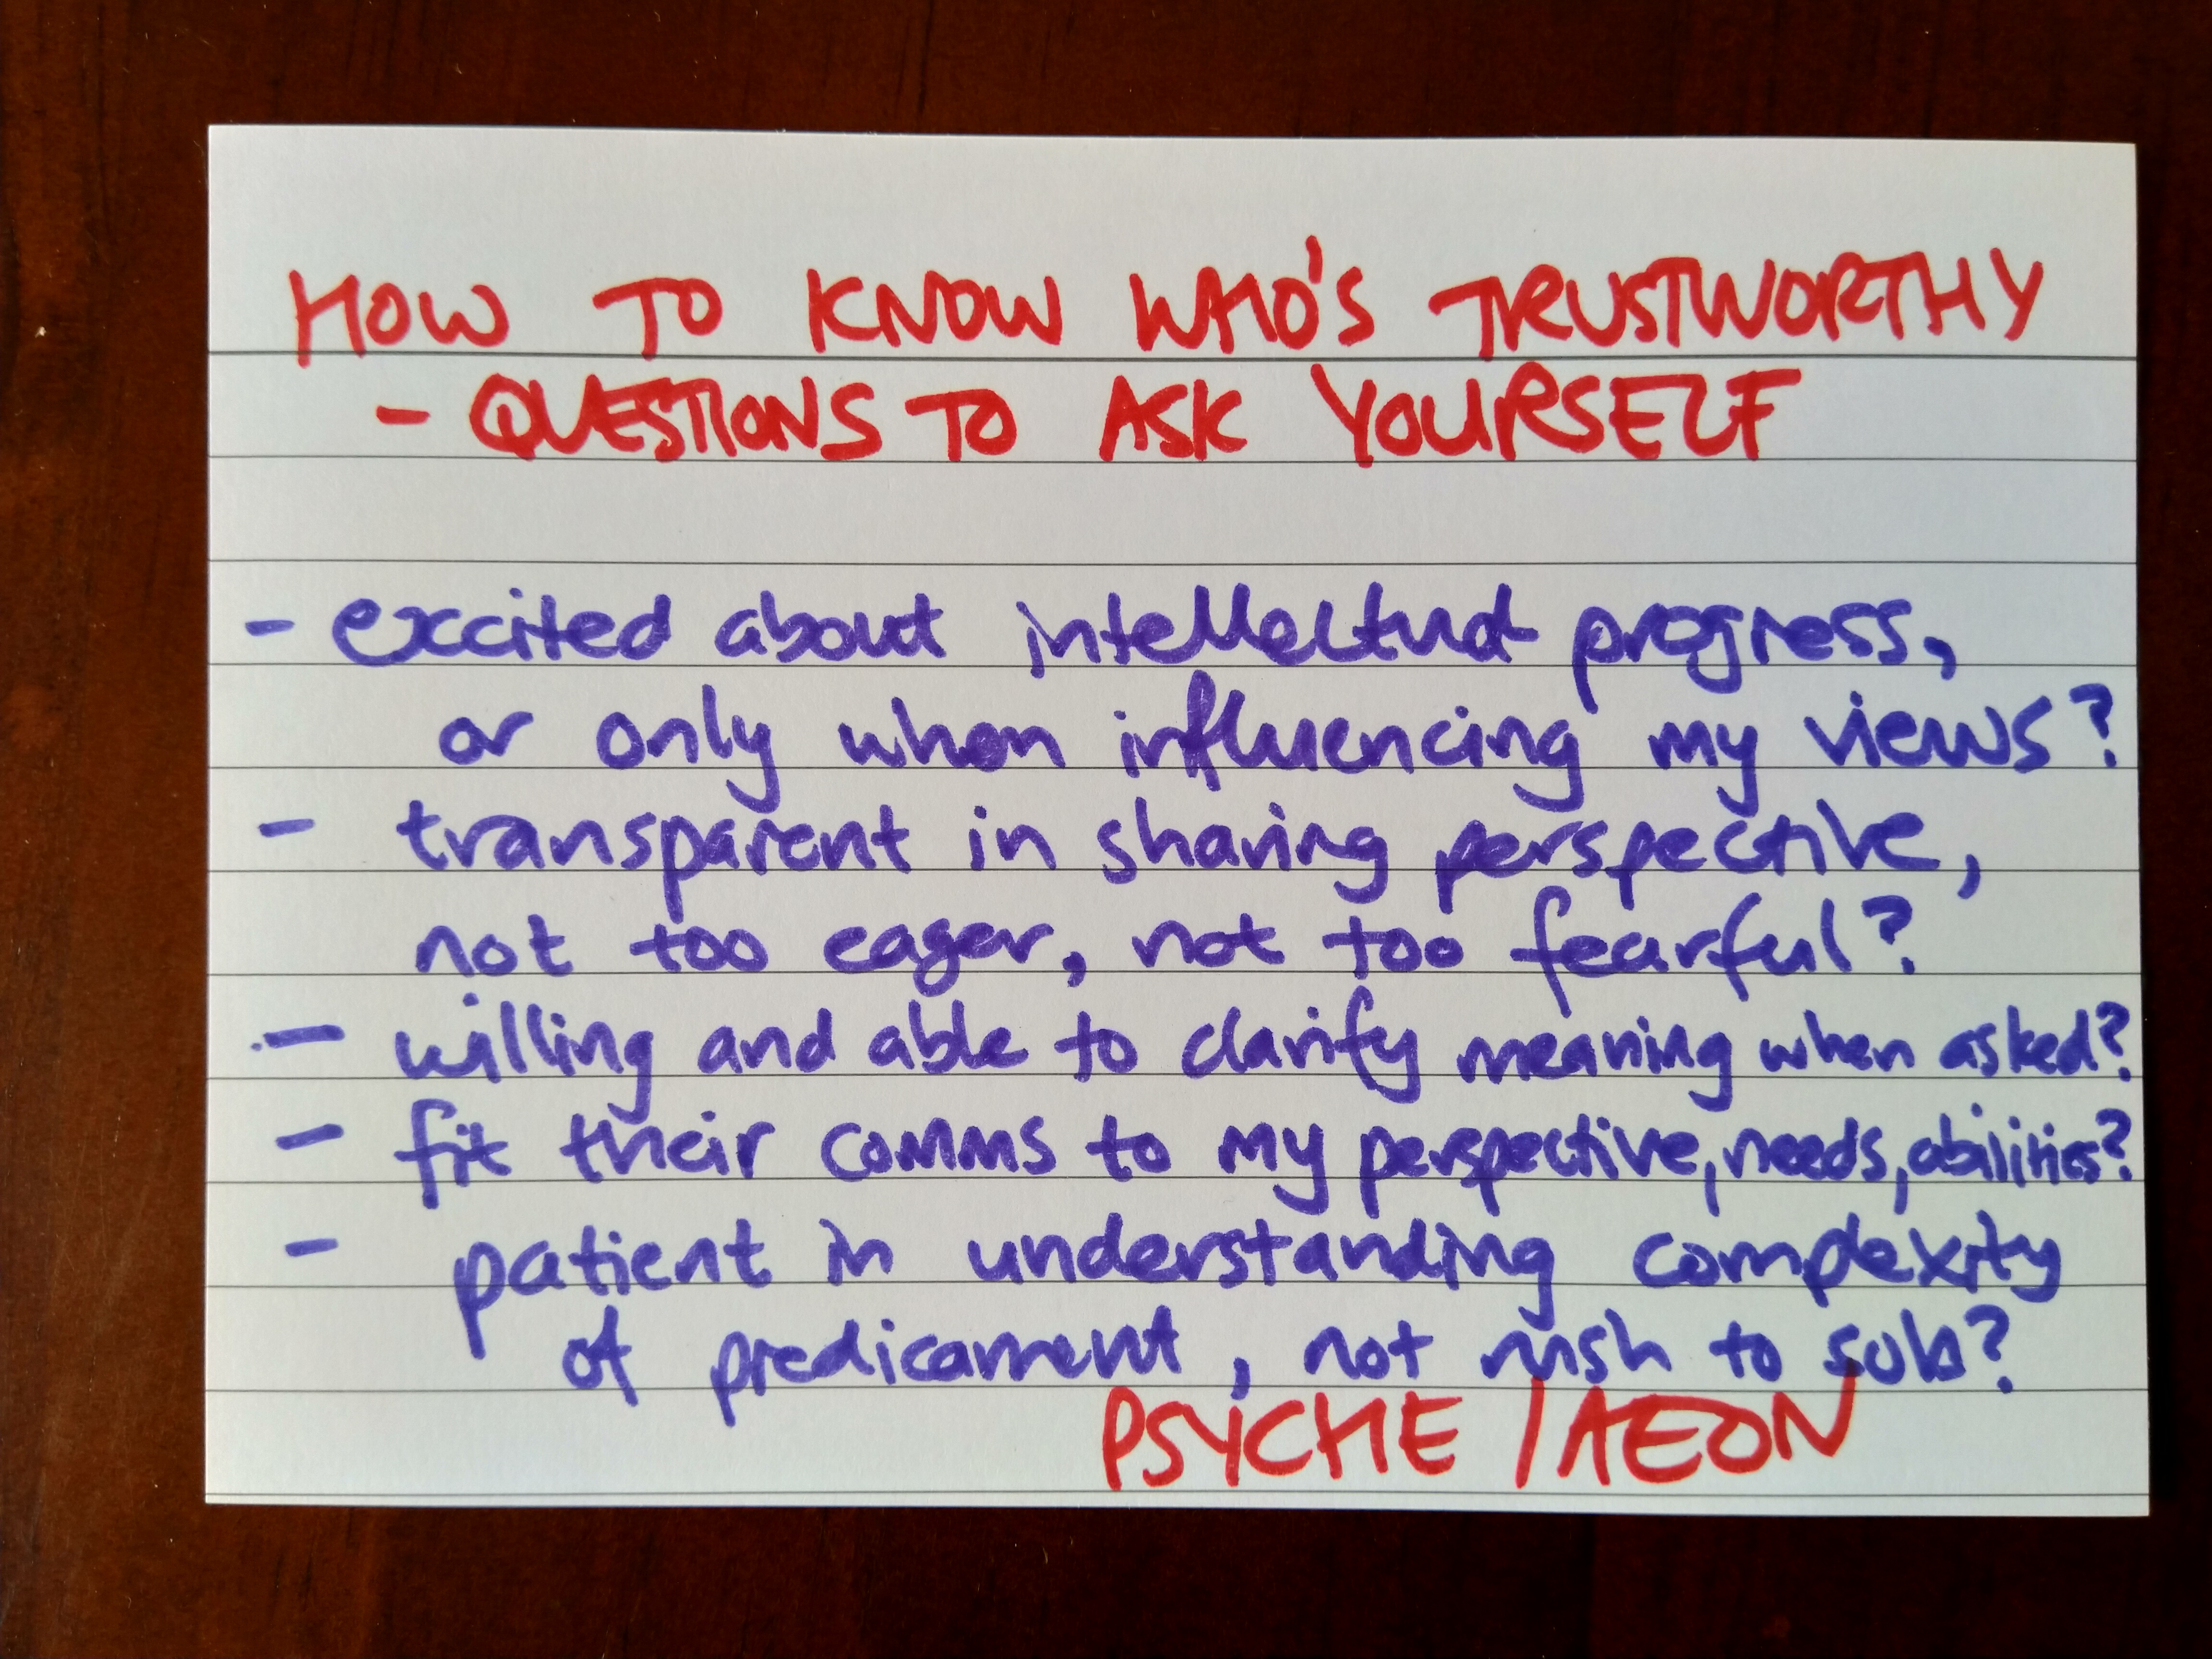 HOW TO KNOW WHO'S TRUSTWORTHY
- QUESTIONS TO ASK YOURSELF
- excited about intellectual progress,
or only when influencing my views?
- transparent in sharing perspective,
not too eager, not too fearful?
- willing and able to clarify meaning when asked?
- fit their comms to my perspective, needs, abilities?
- patient in understanding complexity
of predicament, not rush to soln?
PSYCHE / AEON